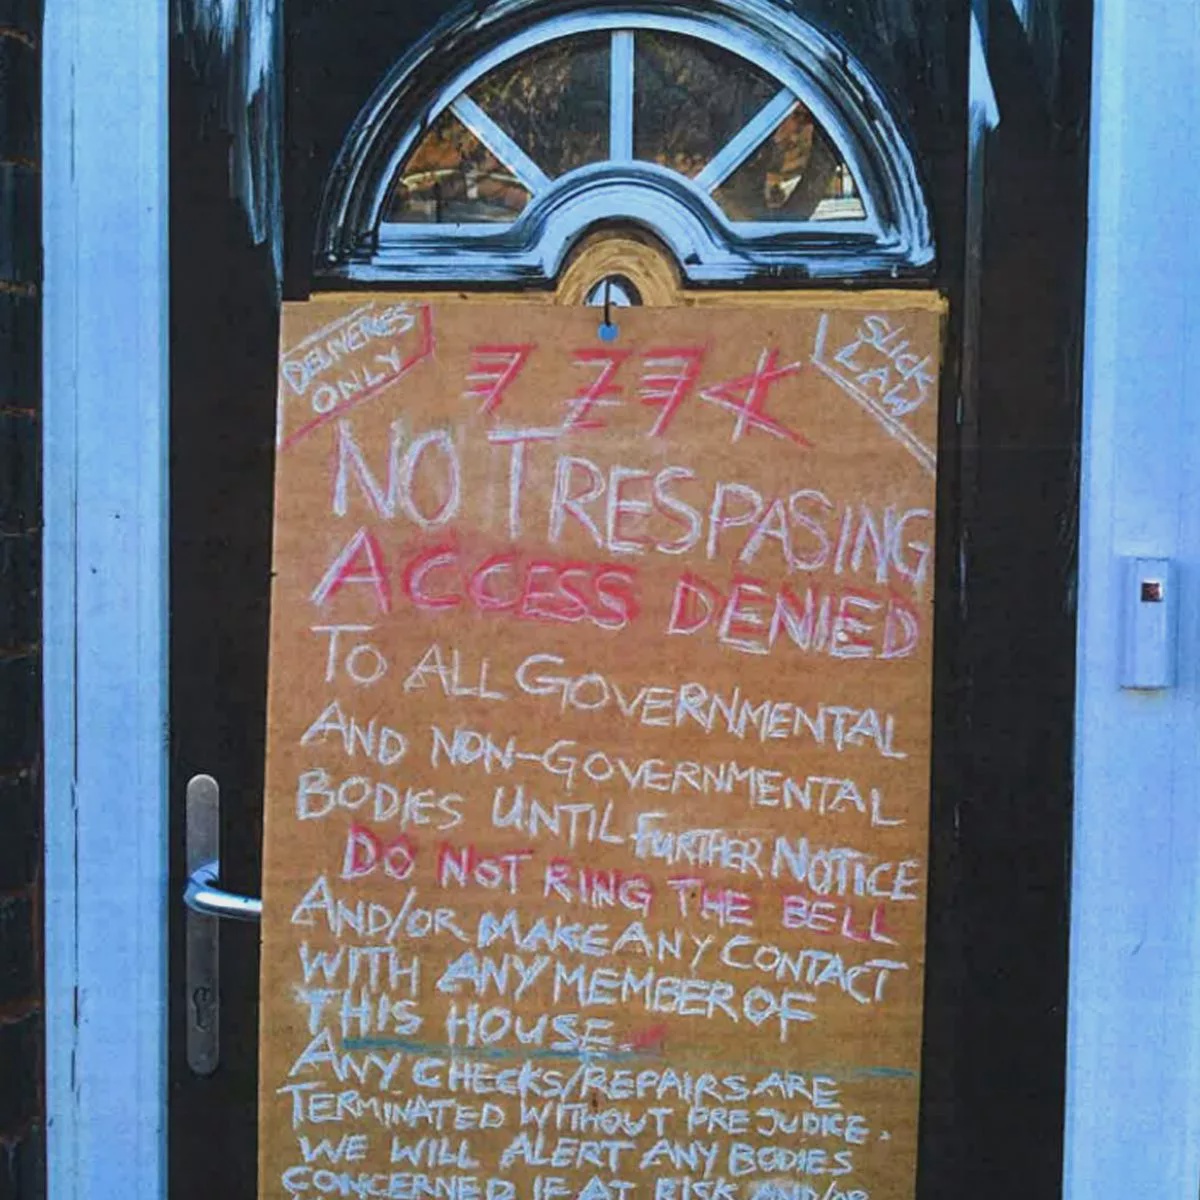 DELIVERIES
ONLY
SLICK
LAW
NO TRESPASING
ACCESS DENIED
TO ALL GOVERNMENTAL
AND NON-GOVERNMENTAL
BODIES UNTIL FURTHER NOTICE
DO NOT RING THE BELL
AND/OR MAKE ANY CONTACT
WITH ANY MEMBER OF
THIS HOUSE.
ANY CHECKS/REPAIRS ARE
TERMINATED WITHOUT PREJUDICE.
WE WILL ALERT ANY BODIES
CONCERNED IF AT RISK AND/OR